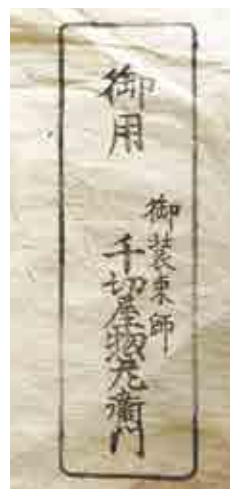 御用
御装束師
千切屋惣左衛門